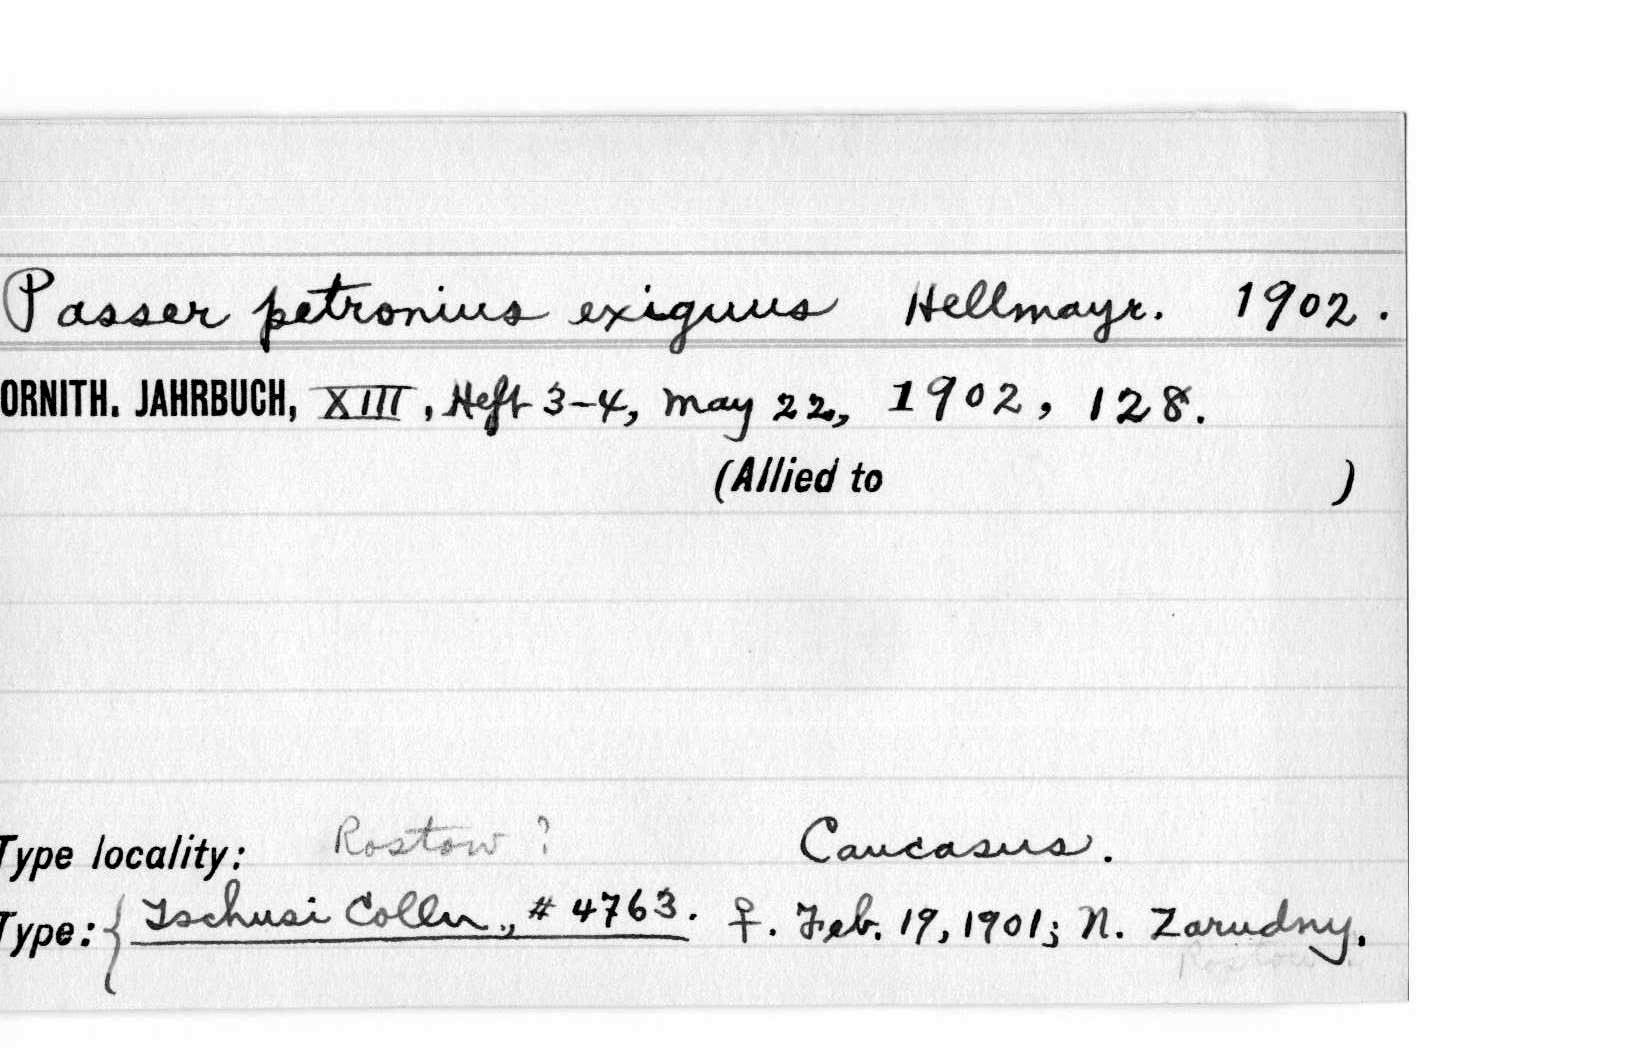 Passer petronius exiguus Hellmayr. 1902.
ORNITH. JAHRBUCH, XIII, Heft 3-4, May 22, 1902, 128.
(Allied to )
Type locality: Rostow ? Caucasus.
Type: { Tschusi Colln., # 4763. ♀. Feb. 19, 1901; N. Zarudny.
Rostow